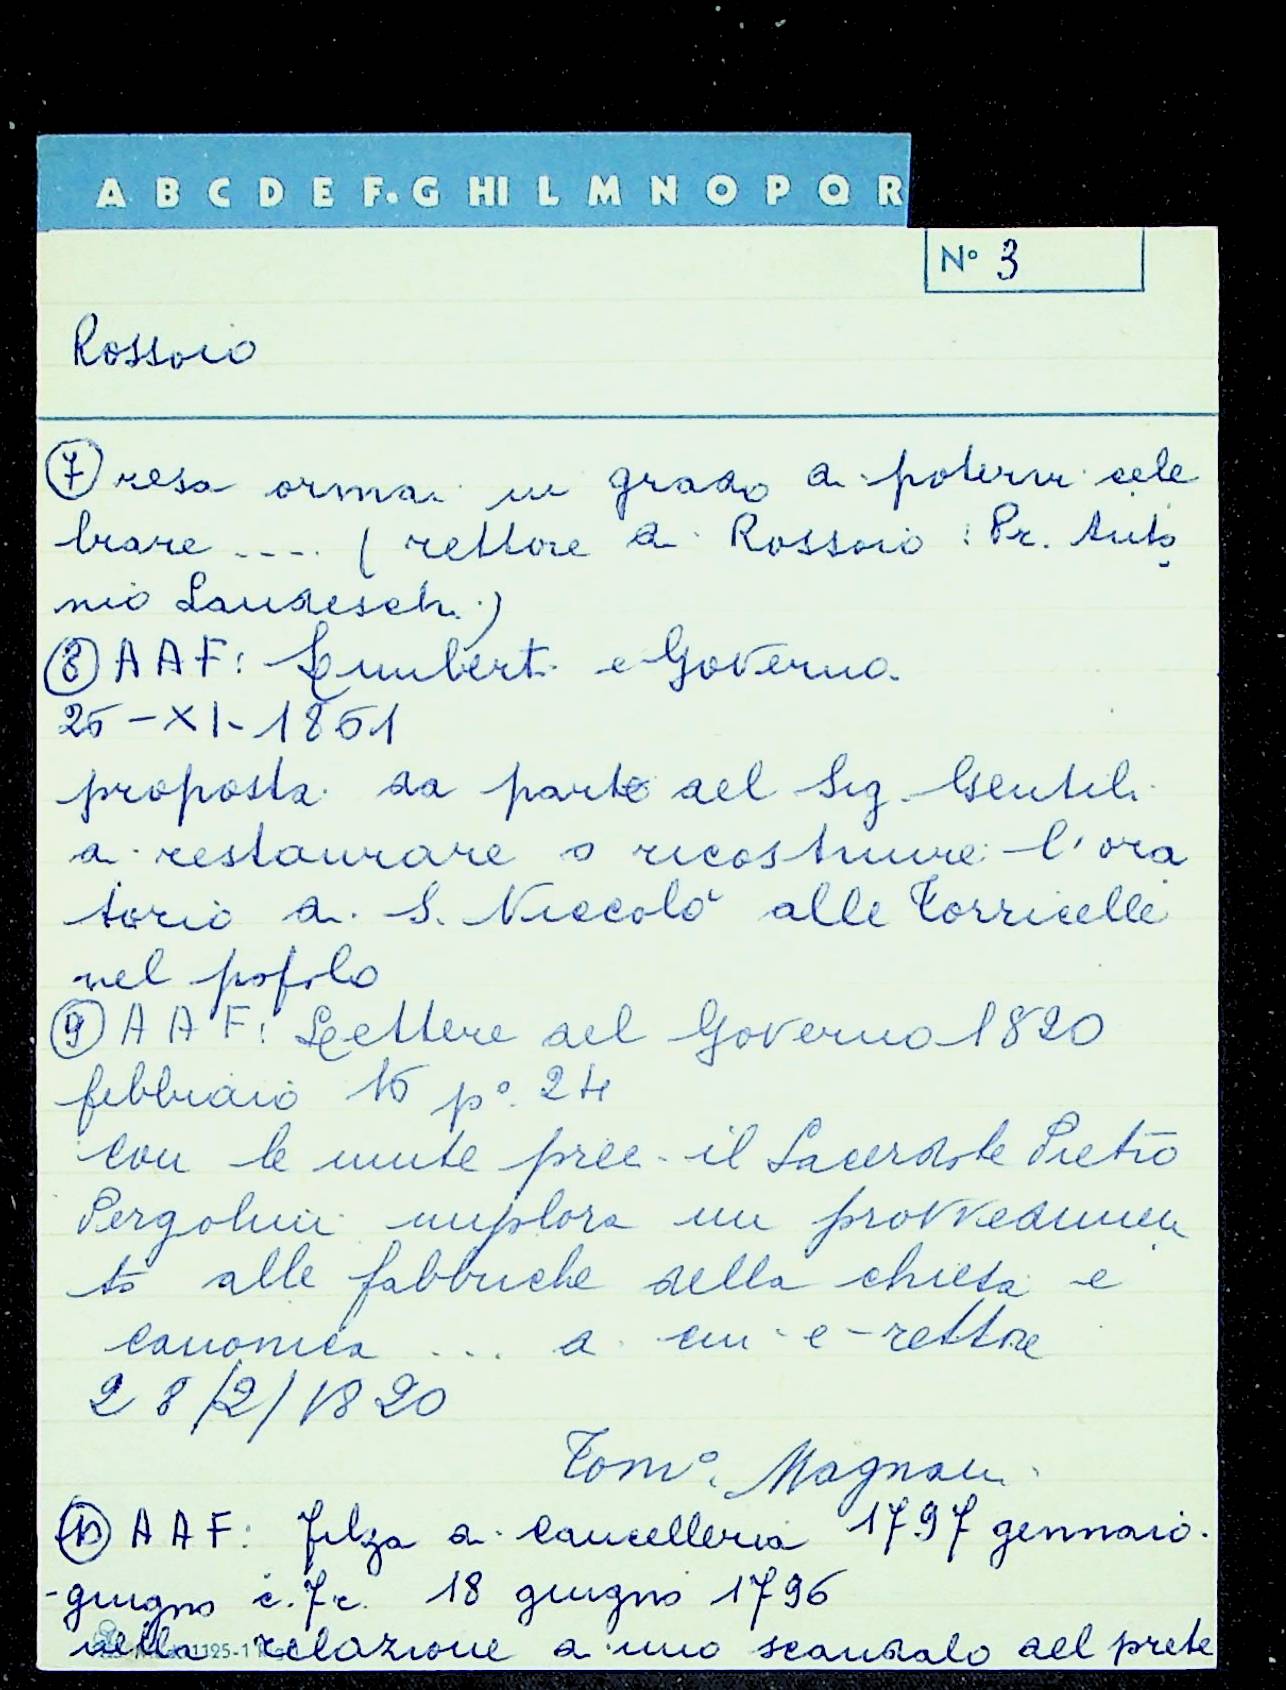 A B C D E F·G HI L M N O P Q R
N° 3
Rossoio
7 resa ormai in grado di potervi cele
brare .... ( rettore di Rossoio : Pr. Anto
nio Landeschi)
8 AAF: Lumberti e Governo.
25-XI-1851
proposta da parte del Sig. Gentili
di restaurare o ricostruire l'ora
torio di S. Niccolò alle Torricelle
nel popolo
9 AAF: Lettere del Governo 1820
febbraio 15 p° 24
con le unite preci il Sacerdote Pietro
Pergolini implora un provvedimen
to alle fabbriche della chiesa e
canonica ... di cui è rettore
28/2/1820
Tom°. Magnani
10 AAF: filza di cancelleria 1797 gennaio
-giugno 18 giugno 1796
nella relazione di uno scandalo del prete